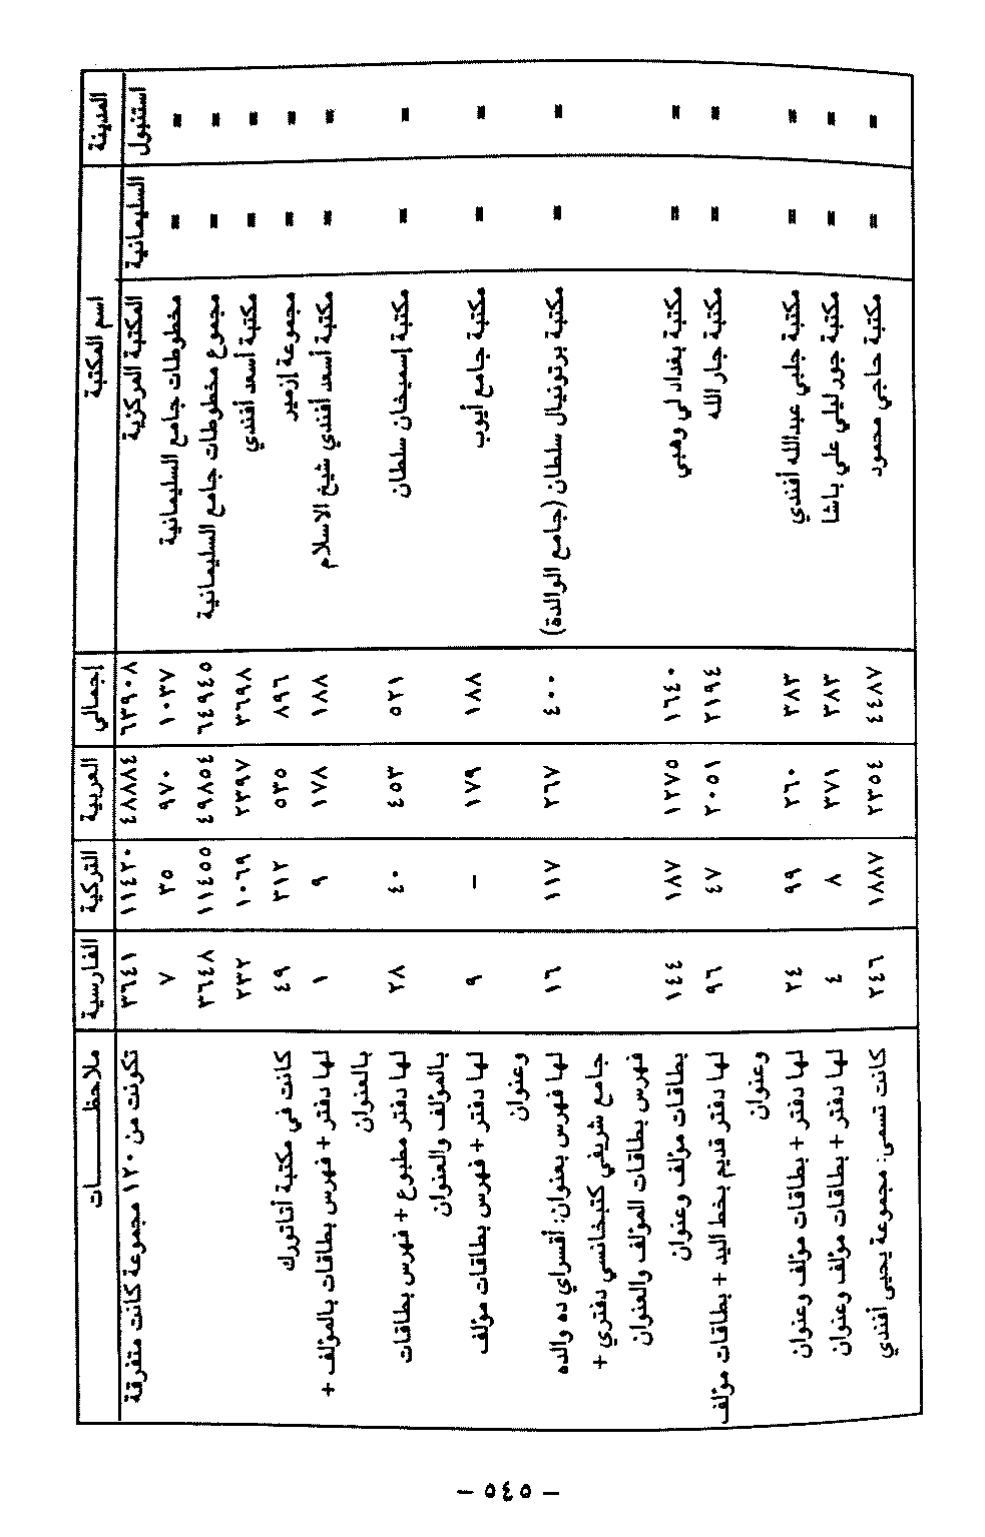 المدينة اسم المكتبة إجمالي العربية التركية الفارسية ملاحظـــــــات
استنبول السليمانية المكتبة المركزية ٦٣٩٠٨ ٤٨٨٨٤ ١١٤٢٠ ٣٦٤١ تكونت من ١٢٠ مجموعة كانت متفرقة
= = مخطوطات جامع السليمانية ١٠٣٧ ٩٧٠ ٣٥ ٧
= = مجموع مخطوطات جامع السليمانية ٦٤٩٤٥ ٤٩٨٥٤ ١١٤٥٥ ٣٦٤٨
= = مكتبة أسعد أفندي ٣٦٩٨ ٢٣٩٧ ١٠٦٩ ٢٣٢
= = مجموعة إزمير ٨٩٦ ٥٣٥ ٣١٢ ٤٩ كانت في مكتبة أتاتورك
= = مكتبة أسعد أفندي شيخ الاسلام ١٨٨ ١٧٨ ٩ ١ لها دفتر + فهرس بطاقات بالمؤلف +
بالعنوان
= = مكتبة إسميخان سلطان ٥٢١ ٤٥٣ ٤٠ ٢٨ لها دفتر مطبوع + فهرس بطاقات
بالمؤلف والعنوان
= = مكتبة جامع أيوب ١٨٨ ١٧٩ – ٩ لها دفتر + فهرس بطاقات مؤلف
وعنوان
= = مكتبة برتونيال سلطان (جامع الوالدة) ٤٠٠ ٢٦٧ ١١٧ ١٦ لها فهرس بعنوان: أقسراي ده والده
جامع شريفي كتبخانسي دفتري +
فهرس بطاقات المؤلف والعنوان
= = مكتبة بغدادلي وهبي ١٦٤٠ ١٢٧٥ ١٨٧ ١٤٤ بطاقات مؤلف وعنوان
= = مكتبة جار الله ٢١٩٤ ٢٠٥١ ٤٧ ٩٦ لها دفتر قديم بخط اليد + بطاقات مؤلف
وعنوان
= = مكتبة جلبي عبدالله أفندي ٣٨٣ ٢٦٠ ٩٩ ٢٤ لها دفتر + بطاقات مؤلف وعنوان
= = مكتبة جورليلي علي باشا ٣٨٣ ٣٧١ ٨ ٤ لها دفتر + بطاقات مؤلف وعنوان
= = مكتبة حاجي محمود ٤٤٨٧ ٢٣٥٤ ١٨٨٧ ٢٤٦ كانت تسمى: مجموعة يحيى أفندي
– ٥٤٥ –